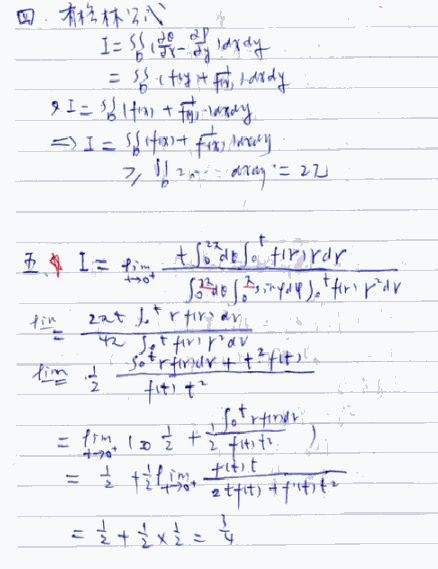 四. 有格林公式
I = ∬_D (∂Q/∂x - ∂P/∂y) dxdy
= ∬_D (f(y) + 1/f(x)) dxdy
又 I = ∬_D (f(x) + 1/f(y)) dxdy
=> I = ∬_D (f(x) + 1/f(x)) dxdy
≥ ∬_D 2 dxdy = 2π
五. I = lim_{t→0⁺} t∫₀^{2π}dθ∫₀^t f(r)rdr / ∫₀^{2π}dθ∫₀^π sinφdφ∫₀^t f(r)r²dr
lim = 2πt ∫₀^t r f(r) dr / 4π ∫₀^t f(r) r² dr
lim = 1/2 ∫₀^t r f(r)dr + t² f(t) / f(t) t²
= lim_{t→0⁺} ( 1/2 + 1/2 ∫₀^t r f(r)dr / f(t)t² )
= 1/2 + 1/2 lim_{t→0⁺} f(t) t / 2t f(t) + f'(t) t²
= 1/2 + 1/2 × 1/2 = 3/4